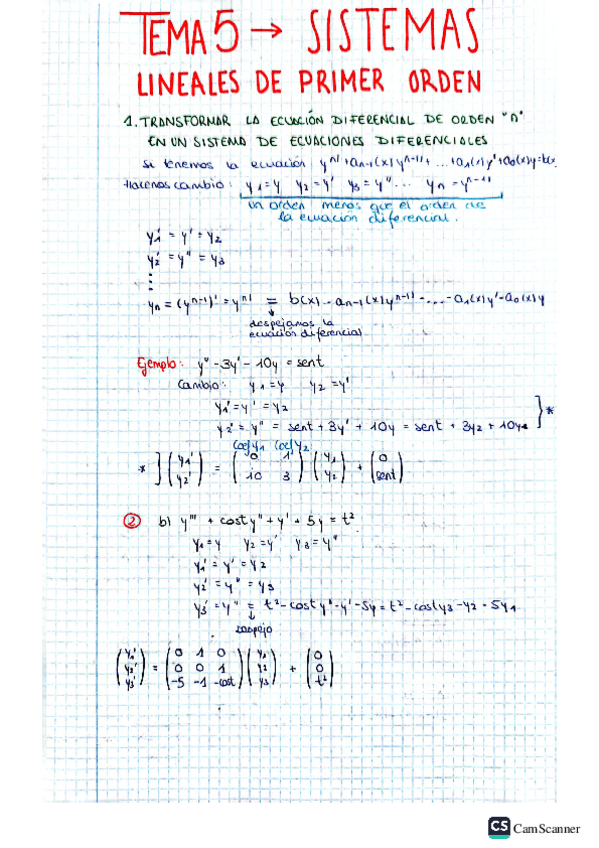 TEMA 5 → SISTEMAS
LINEALES DE PRIMER ORDEN
1. TRANSFORMAR LA ECUACIÓN DIFERENCIAL DE ORDEN "n"
EN UN SISTEMA DE ECUACIONES DIFERENCIALES
Si tenemos la ecuación: yⁿ⁾+an-1(x)yⁿ⁻¹⁾+ ... +a1(x)y'+a0(x)y=b(x)
Hacemos cambio: y1=y y2=y' y3=y''... yn=yⁿ⁻¹⁾
un orden menos que el orden de
la ecuación diferencial.
y1' = y' = y2
y2' = y'' = y3
⋮
yn=(yⁿ⁻¹⁾)'=yⁿ⁾ = b(x)-an-1(x)yⁿ⁻¹⁾-...-a1(x)y'-a0(x)y
↓
despejamos la
ecuación diferencial
Ejemplo: y''-3y'-10y=sent
Cambio: y1=y y2=y'
y1'=y'=y2
y2'=y''= sent+3y'+10y=sent+3y2+10y1 } *
coef y1 coef y2
* } (y1') = (0 1) (y1) + (0)
(y2') (10 3) (y2) (sent)
② b) y'''+cost y''+y'+5y=t²
y1=y y2=y' y3=y''
y1'=y'=y2
y2'=y''=y3
y3'=y''=t²-cost y''-y'-5y=t²-cost y3-y2-5y1
↓
despejo
(y1') = (0 1 0) (y1) + (0)
(y2') (0 0 1) (y2) (0)
(y3') (-5 -1 -cost) (y3) (t²)
CS CamScanner